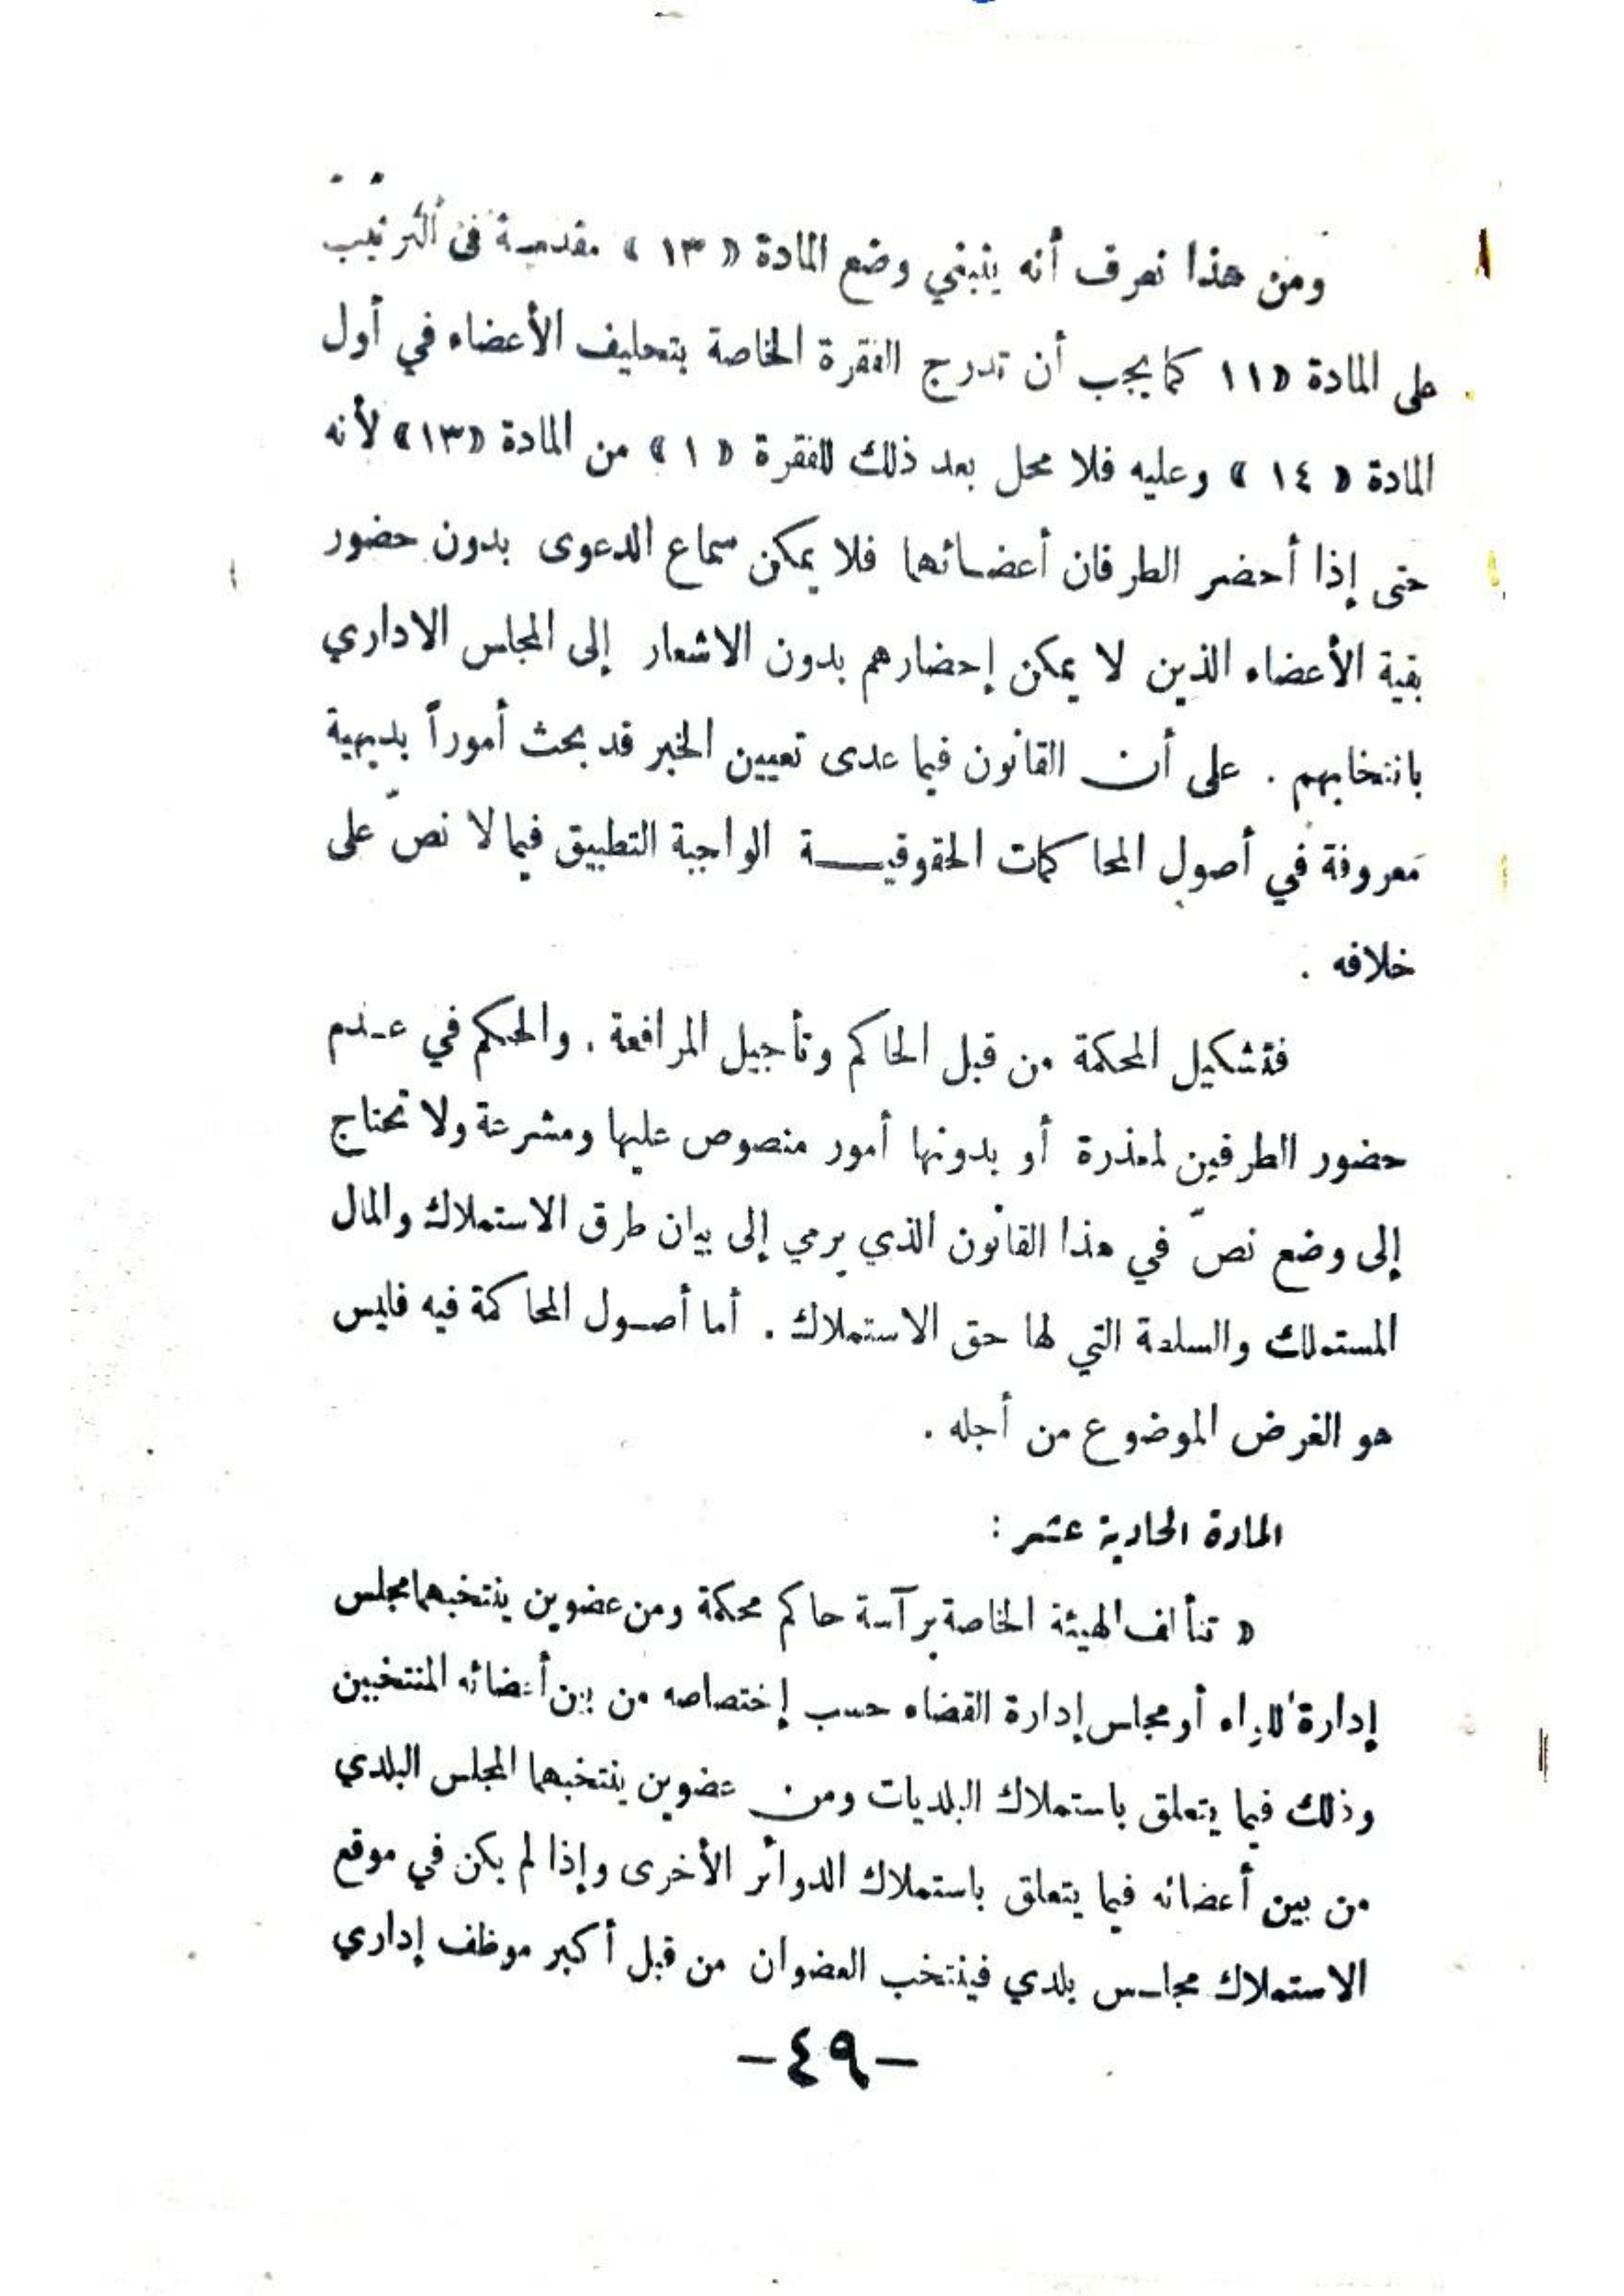 ومن هذا نعرف أنه ينبغي وضع المادة « ١٣ » مقدمة في الترتيب
على المادة «١١ كما يجب أن تدرج الفقرة الخاصة بتحليف الأعضاء في أول
المادة « ١٤ » وعليه فلا محل بعد ذلك للفقرة « ١ » من المادة «١٣» لأنه
حتى إذا أحضر الطرفان أعضائهما فلا يمكن سماع الدعوى بدون حضور
بقية الأعضاء الذين لا يمكن إحضارهم بدون الاشعار إلى المجلس الاداري
بانتخابهم . على أن القانون فيما عدى تعيين الخبر قد بحث أموراً بديهية
معروفة في أصول المحاكمات الحقوقية الواجبة التطبيق فيما لا نصّ على
خلافه .
فتشكيل المحكمة من قبل الحاكم وتأجيل المرافعة . والحكم في عدم
حضور الطرفين لمعذرة أو بدونها أمور منصوص عليها ومشرعة ولا تحتاج
إلى وضع نصّ في هذا القانون الذي يرمي إلى بيان طرق الاستملاك والمال
المستملك والسلطة التي لها حق الاستملاك . أما أصول المحاكمة فيه فليس
هو الغرض الموضوع من أجله .
المادة الحادية عشر :
« تتألف الهيئة الخاصة برآسة حاكم محكمة ومن عضوين ينتخبهما مجلس
إدارة اللواء أو مجلس إدارة القضاء حسب إختصاصه من بين أعضائه المنتخبين
وذلك فيما يتعلق باستملاك البلديات ومن عضوين ينتخبهما المجلس البلدي
من بين أعضائه فيما يتعلق باستملاك الدوائر الأخرى وإذا لم يكن في موقع
الاستملاك مجلس بلدي فينتخب العضوان من قبل أكبر موظف إداري
-٤٩-